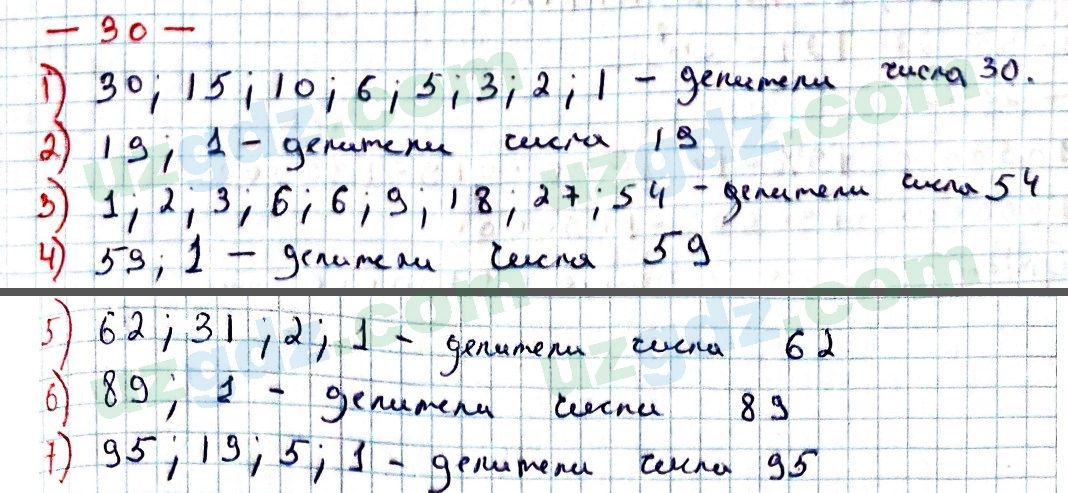 - 30 -
1) 30; 15; 10; 6; 5; 3; 2; 1 - делители числа 30.
2) 19; 1 - делители числа 19
3) 1; 2; 3; 6; 6; 9; 18; 27; 54 - делители числа 54
4) 59; 1 - делители числа 59
5) 62; 31; 2; 1 - делители числа 62
6) 89; 1 - делители числа 89
7) 95; 19; 5; 1 - делители числа 95
uzgdz.com
uzgdz.com
uzgdz.com
uzgdz.com